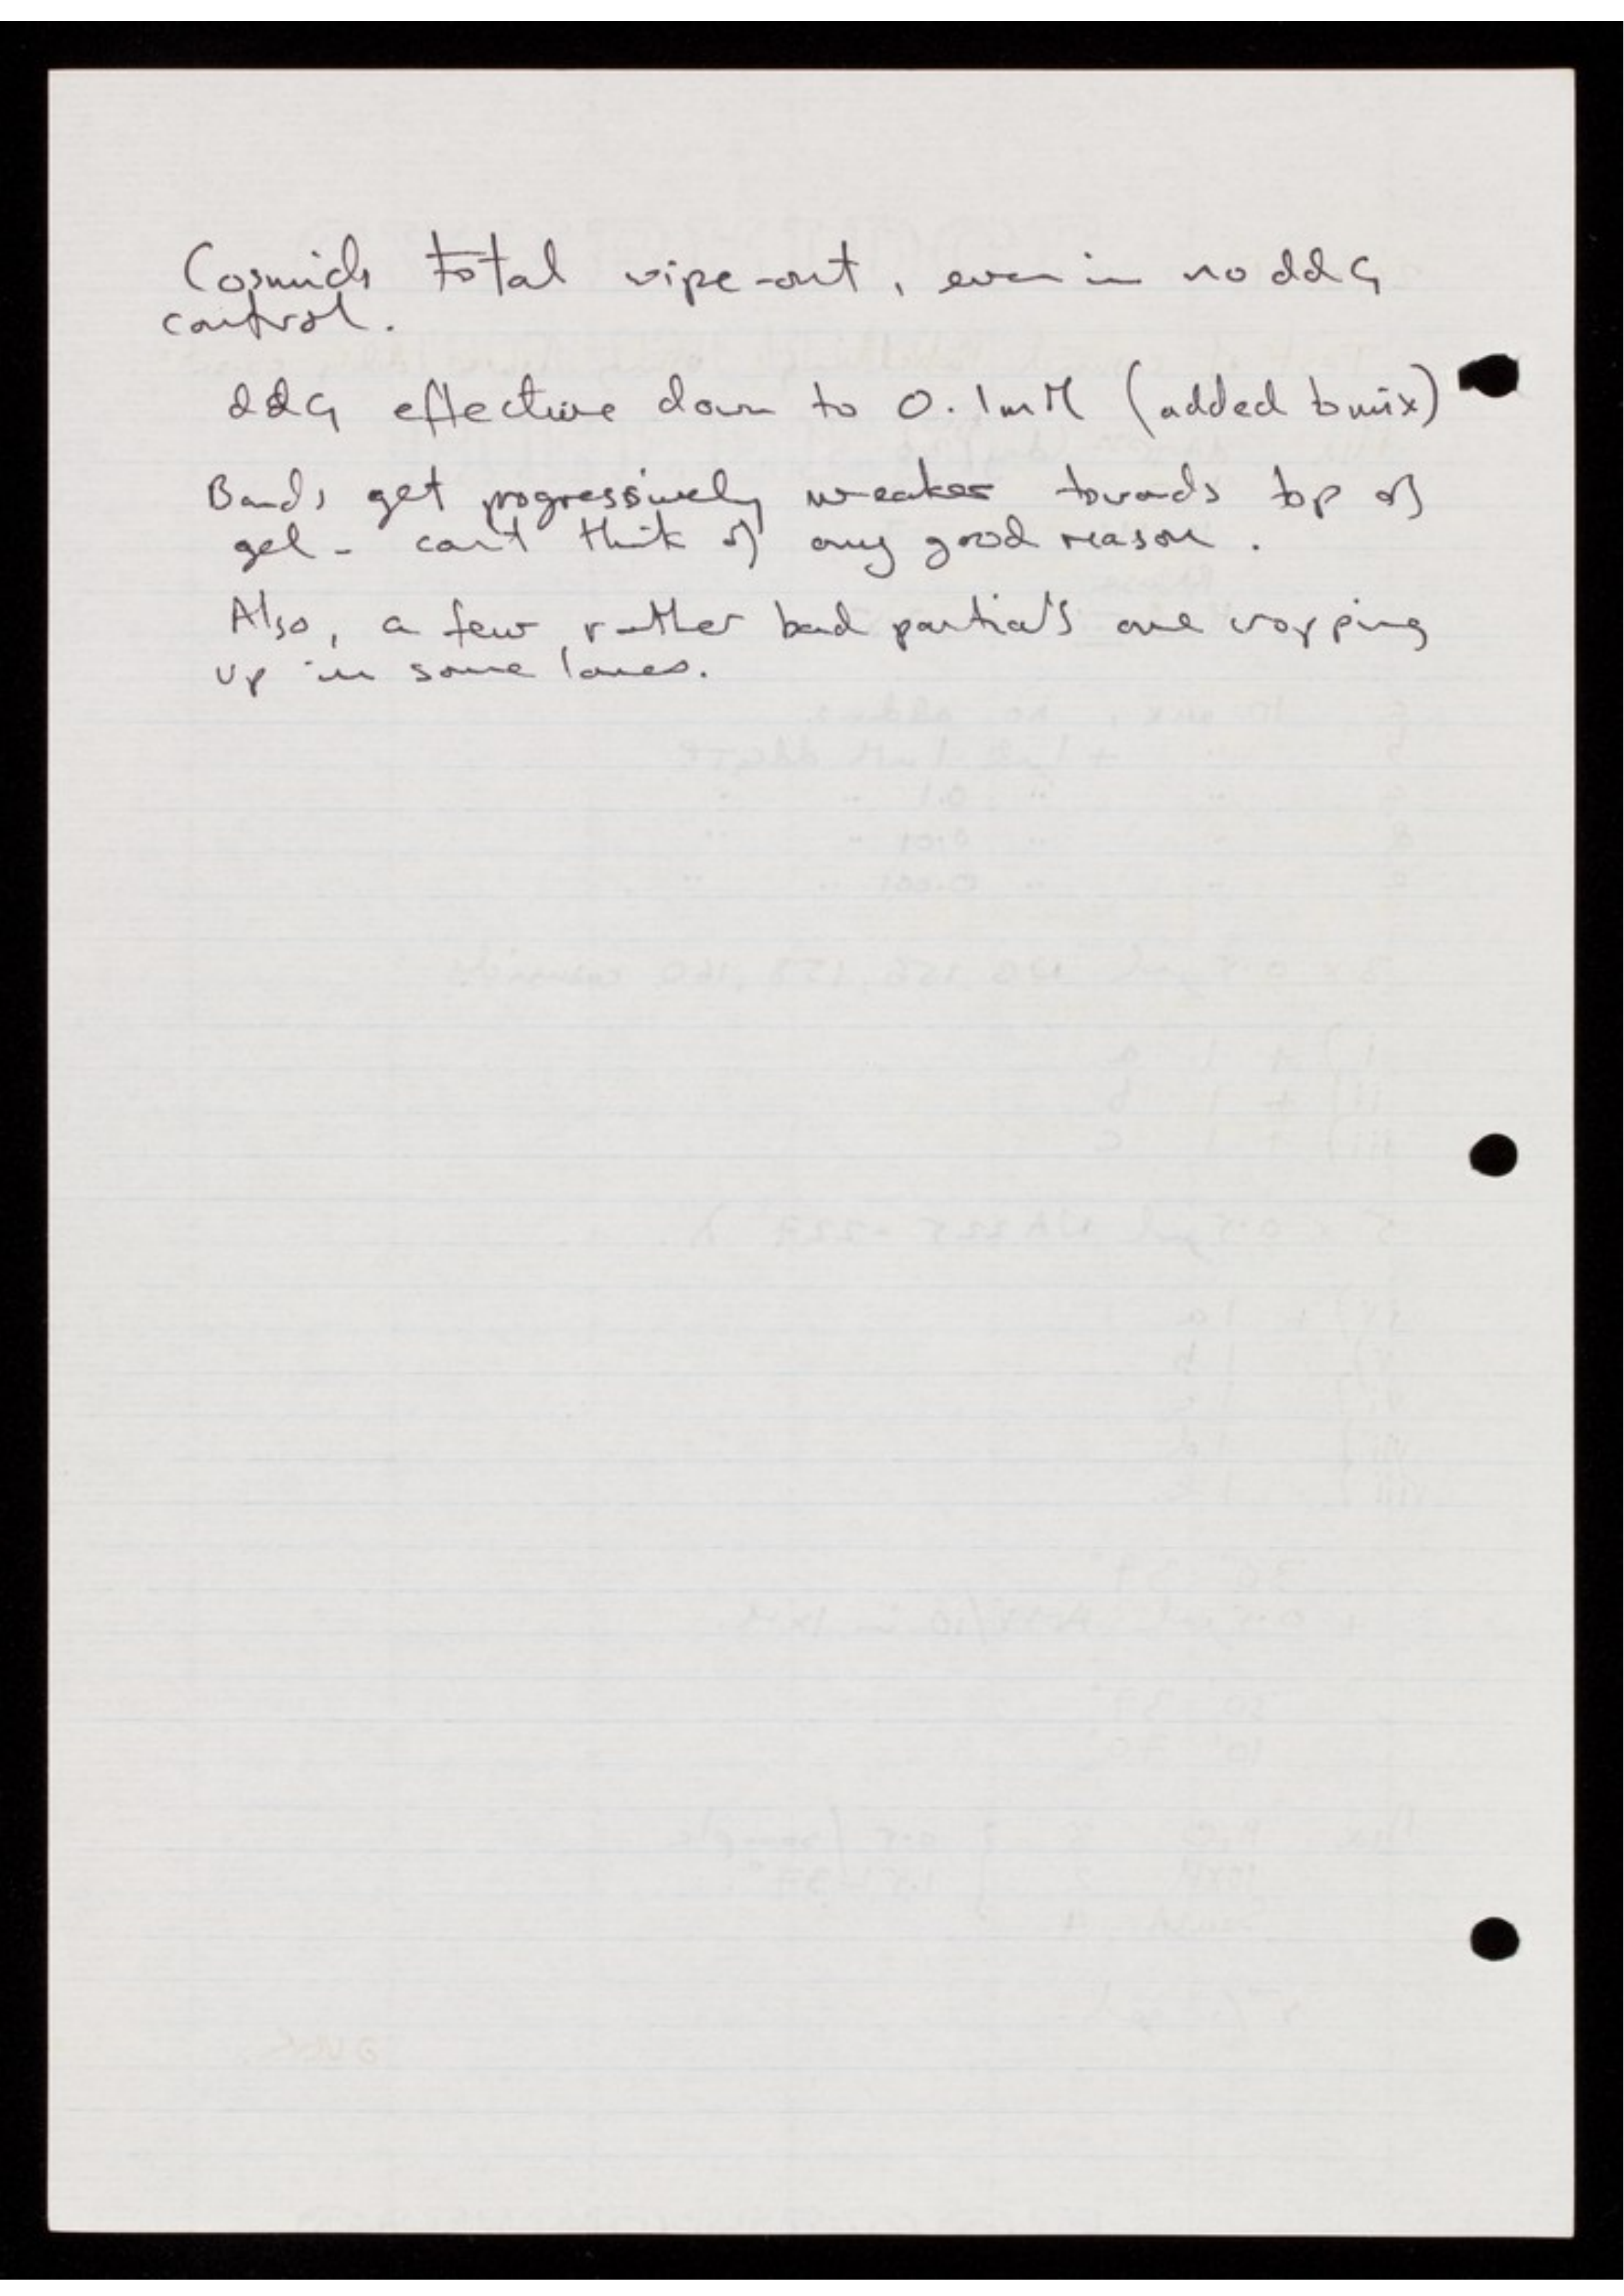 Cosmids total wipe-out, even in no ddG
control.
ddG effective down to 0.1mM (added to mix)
Bands get progressively weaker towards top of
gel - can't think of any good reason.
Also, a few rather bad partials are cropping
up in some lanes.